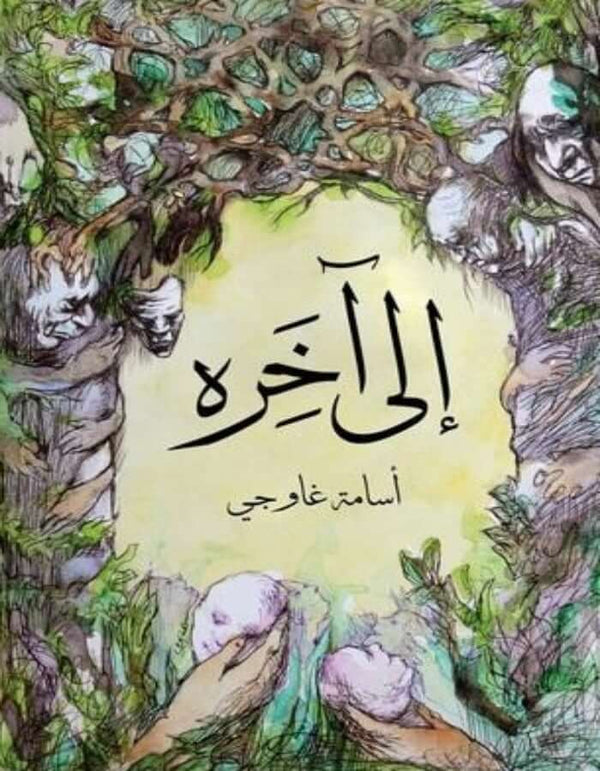 إلى آخَره
أسامة غاوجي